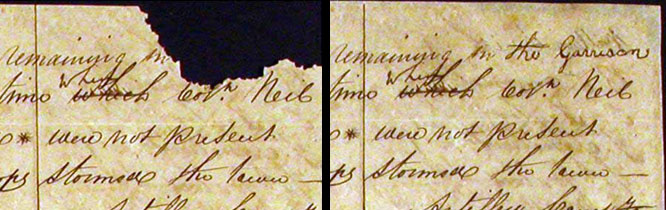 remaining in
When
time which Col.ⁿ Neil
* were not present
ops stormed the town —
remaining in the Garrison
When
time which Col.ⁿ Neil
* were not present
ops stormed the town —